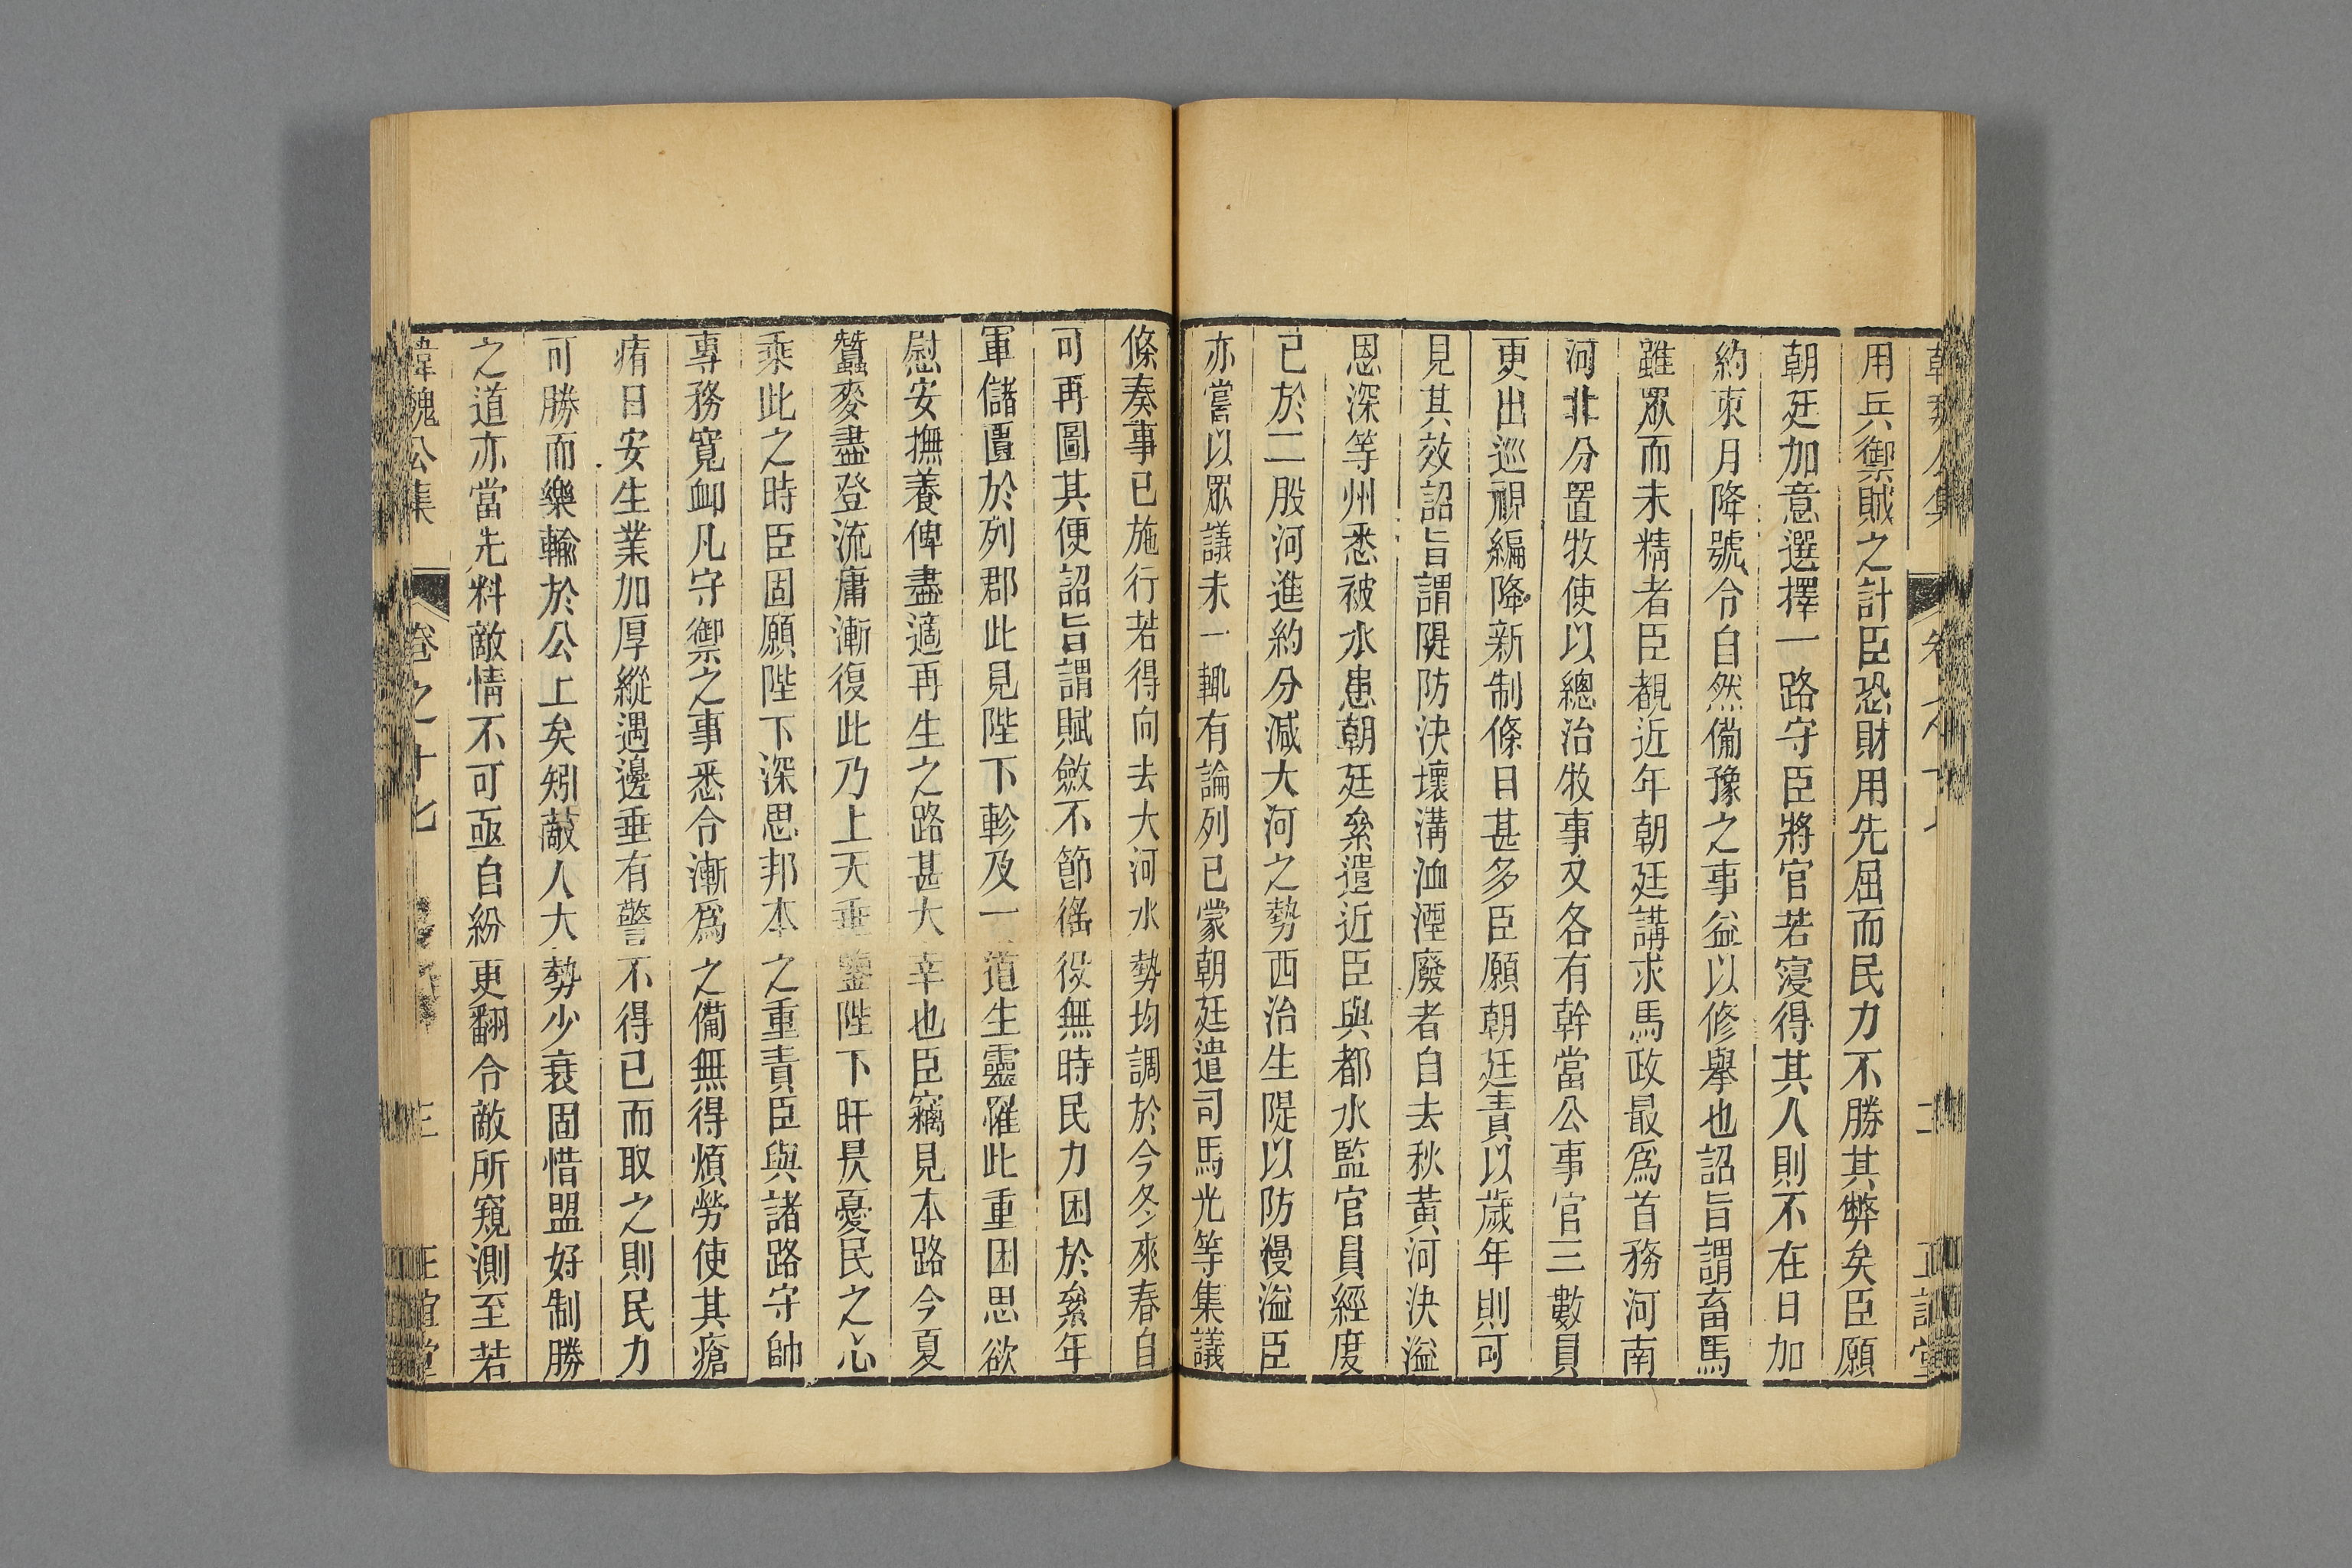 用兵禦賊之計臣恐財用先屈而民力不勝其弊矣臣願
朝廷加意選擇一路守臣將官若寖得其人則不在日加
約束月降號令自然備豫之事益以修舉也詔旨謂畜馬
雖眾而未精者臣覩近年朝廷講求馬政最爲首務河南
河北分置牧使以總治牧事又各有幹當公事官三數員
更出巡視編降新制條目甚多臣願朝廷責以歲年則可
見其效詔旨謂隄防決壞溝洫湮廢者自去秋黃河決溢
恩深等州悉被水患朝廷絫遣近臣與都水監官員經度
已於二股河進約分減大河之勢西治生隄以防漫溢臣
亦嘗以眾議未一輒有論列已蒙朝廷遣司馬光等集議
條奏事已施行若得向去大河水勢均調於今冬來春自
可再圖其便詔旨謂賦斂不節徭役無時民力困於絫年
軍儲匱於列郡此見陛下軫及一道生靈罹此重困思欲
慰安撫養俾盡適再生之路甚大幸也臣竊見本路今夏
蠶麥盡登流庸漸復此乃上天垂鑒陛下旰昃憂民之心
乘此之時臣固願陛下深思邦本之重責臣與諸路守帥
專務寬卹凡守禦之事悉令漸爲之備無得煩勞使其瘡
痏日安生業加厚縱遇邊垂有警不得已而取之則民力
可勝而樂輸於公上矣矧敵人大勢少衰固惜盟好制勝
之道亦當先料敵情不可亟自紛更翻令敵所窺測至若
韓魏公集 卷之十七 三 正誼堂